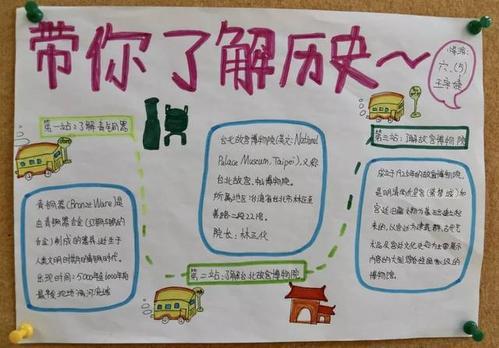 带你了解历史～
六.(5)
第一站:了解青铜器
青铜器(Bronze Ware)是
由青铜合金(红铜与锡的
合金)制成的器具,诞生于
人类文明时期的青铜时代。
出现时间:5000年至6000年前
台北故宫博物院(英文:National
Palace Museum, Taipei),又称
台北故宫、中山博物院。
所属地区:台湾省台北市士林区至
善路二段221号。
院长:林正仪
第二站:了解台北故宫博物院
第三站:了解故宫博物院
成立于1925年的故宫博物院,
是明清两代皇宫(紫禁城)和
宫廷旧藏文物为基础建立起
来的,以宫廷建筑群,古代艺
术品及宫廷文化史迹为主要展示
内容的大型综合性国家级的
博物馆。